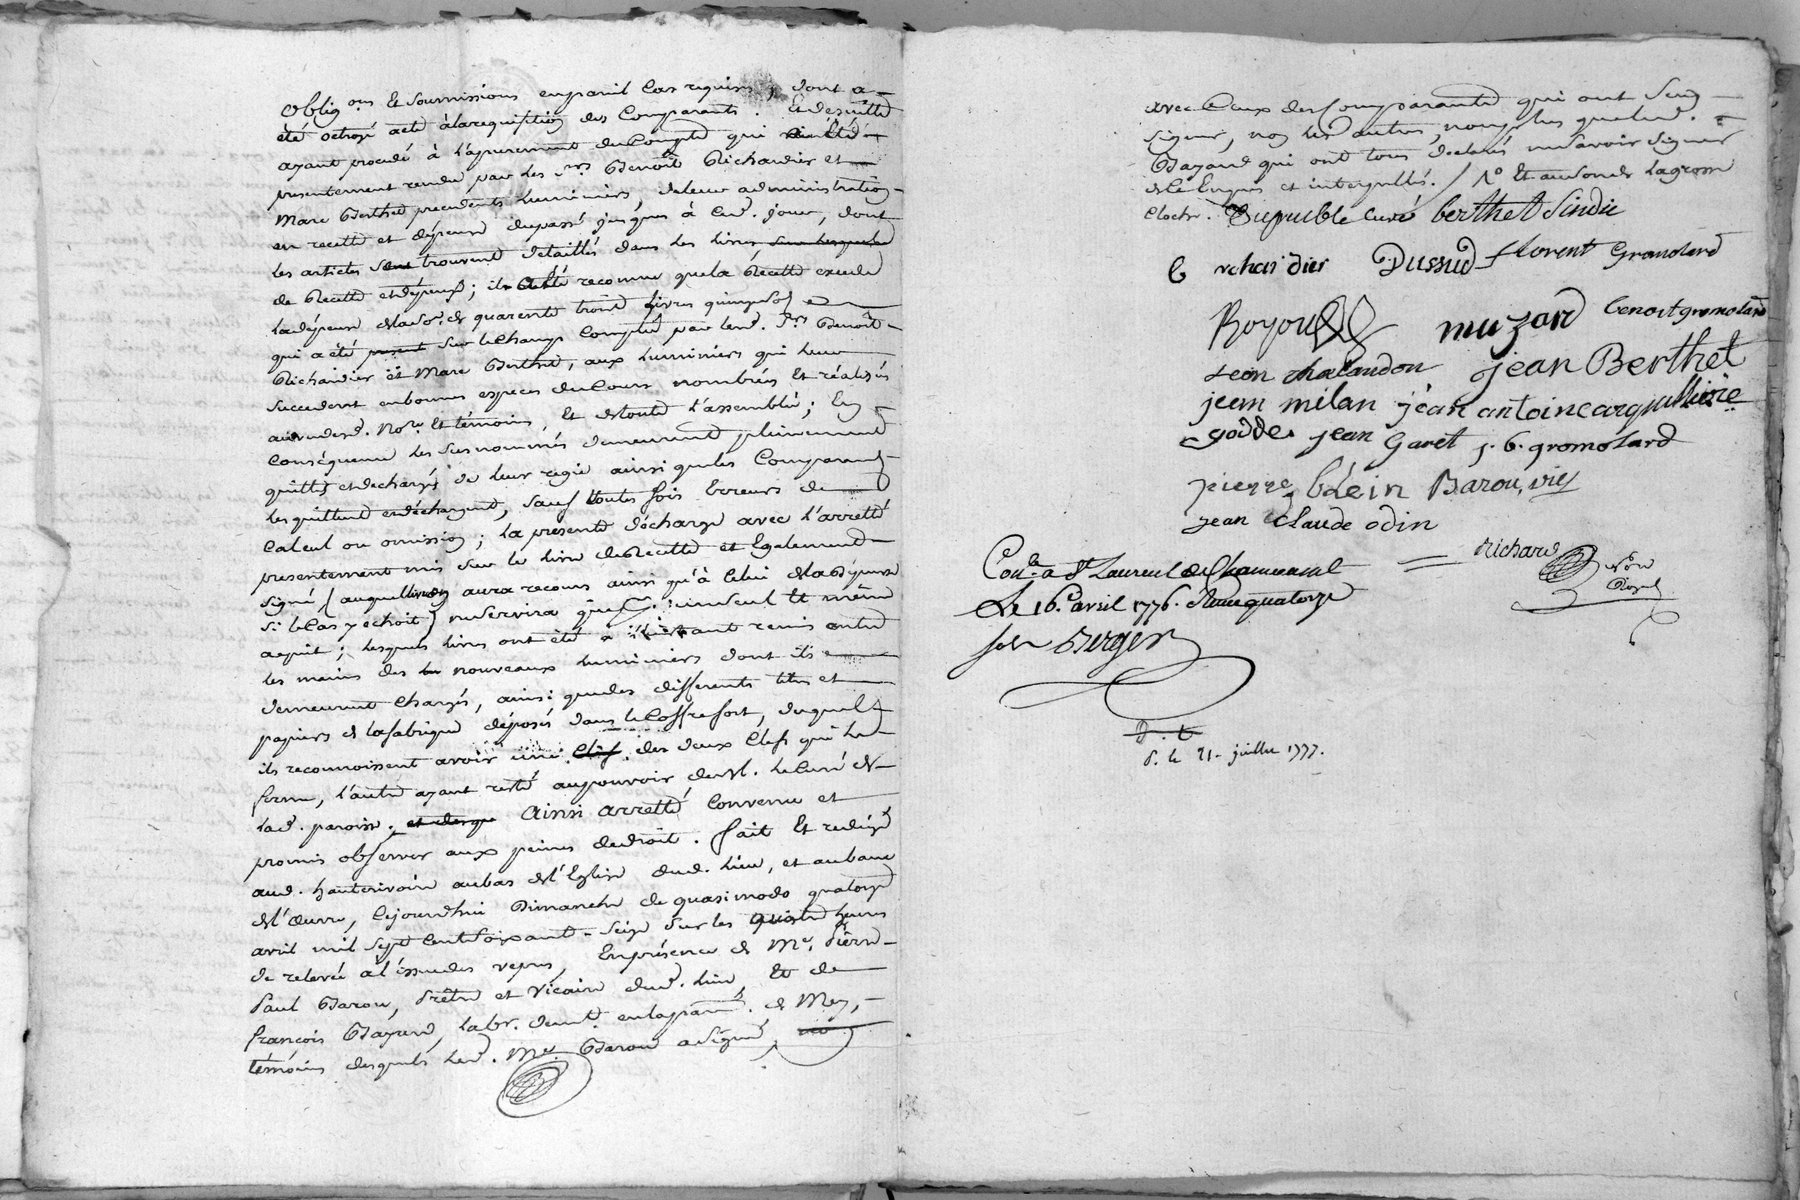 Oblig.ons Et soumissions enpareil Cas requises, dont a
été octroyé acte àlarequisition des Comparants. Et desuitte
ayant procedé à l'apurement duCompte qui
presentement rendu par les Srs Benoit Richardier et
Marc Berthet precedents Luminiers, deleur administration
en recette et dépense dupassé jusques à Ced. jour, dont
les articles se trouvent detaillés dans les livres
de Recette etdépense; il a été reconnu quela Recette excede
ladépense delaso.e de quarente trois livres
qui a été sur leChamp Compté par lesd. Srs Benoit
Richardier et Marc Berthet, aux Luminiers qui leur
succedent enbonnes especes duCours nombrées Et réalisés
auvudesd. No.re Et témoins, Et detoute l'assemblée; En
Conséquence les susnommés demeurent pleinement
quittes etdechargés de leur regie ainsi queles Comparants
les quittent endéchargent, sauf toutes fois Erreurs de
Calcul ou omission; la presente décharge avec l'arretté
presentement mis sur le livre deRecette et Egalement
signé auquel aura recours ainsi qu'à Celui delaDépense
si leCas y echoit) neservira que d'un seul et même
aquit; lesquels livres ont été a l'instant remis entre
les mains des nouveaux Luminiers dont ils
demeurent Chargés, ainsi quedes differents titres et
papiers de lafabrique déposés dans leCoffrefort, duquel
ils reconnoissent avoir une des deux Clefs qui le
ferme, l'autre ayant resté aupouvoir deM. leCuré de
lad. paroisse. Ainsi arretté Convenu et
promis observer aux peines dedroit. fait Et redigé
aud. hauterivoire aubas del'Eglise dud. Lieu, et aubanc
del'œuvre, Cejourdhui Dimanche de quasimodo quatorze
avril mil sept Centsoixante-seize sur les quatre heures
de relevée al'issuedes vepres, Enprésence de Me. Pierre
Paul Barou, Prêtre et Vicaire dud. lieu, Et de
françois Bayard, labr. demt. enlaparoisse de Mey,
témoins desquels led. Me. Barou asigné,
avec Ceux desComparants qui ont sçu
signer, non les autres, nonplus queled.
Bayard qui ont tous declarés nesavoir signer
deCe Enquis et interpellés. / No Et auson de lagrosse
Cloche. Dupuible curé berthet Sindic
b richardier Dussud florent Gromolard
Boyou muzard benoit gromolard
Leon chalandon jean Berthet
jean milan jean antoine arquilliere
godde jean Garet j. b. gromolard
pierre bléin Barou, vic
jean Claude odin
Conlé. a St Laurent de Chamousset
Le 16. avril 1776.
sols Berger
Richard
Nore
Royal
D. t
d. le 21. juillet 1777.